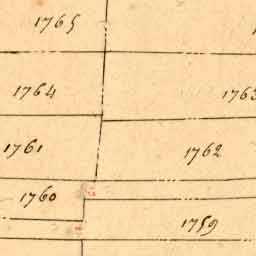 1765
1764
1763
1761
1762
1760
1759